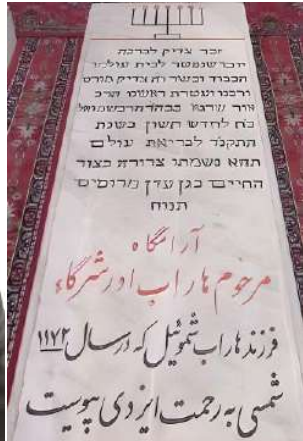 זכר צדיק לברכה
יום שנפטר לבית עולמו
הכבוד והכשר
ורבנו ועטרת ראשנו הרב
אור שרגא
כ"ח לחדש חשון בשנת
התקנ"ד לבריאת עולם
תהא נשמתו צרורה בצור
החיים בגן עדן מרומים
תנוח
آرامگاه
مرحوم هاراب اورشرگاء
فرزند هاراب شموئیل که در سال ۱۱۷۲
شمسی به رحمت ایزدی پیوست